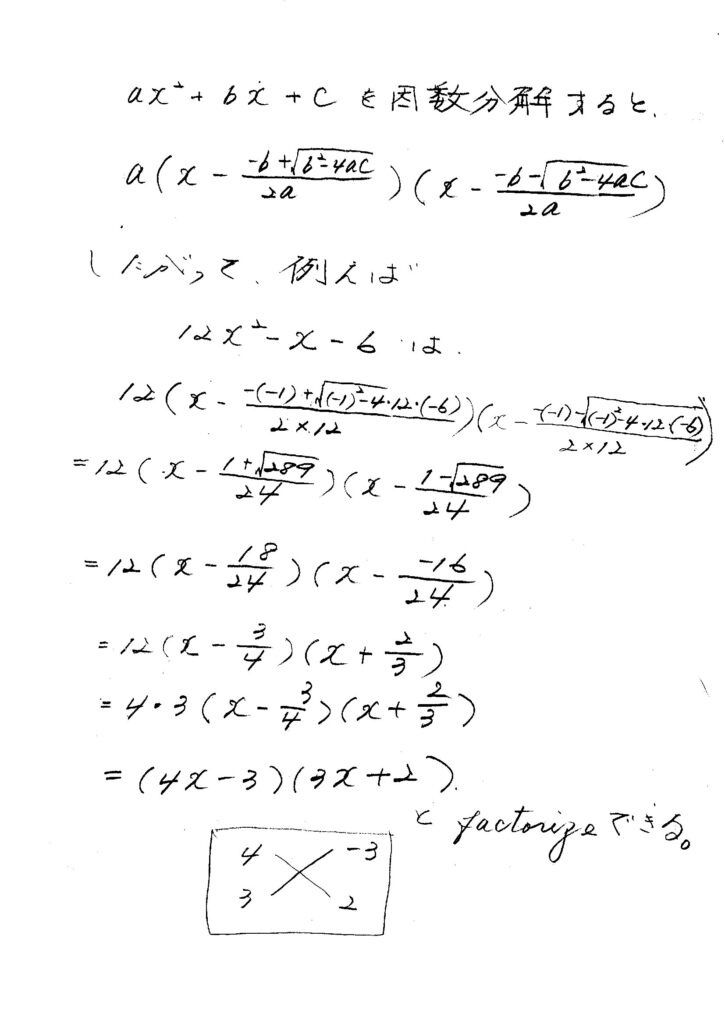 ax²+bx+cを因数分解すると、
a(x - (-b+√(b²-4ac))/(2a))(x - (-b-√(b²-4ac))/(2a))
したがって、例えば
12x²-x-6は
12(x - (-(-1)+√((-1)²-4・12・(-6)))/(2×12))(x - (-(-1)-√((-1)²-4・12・(-6)))/(2×12))
=12(x - (1+√289)/24)(x - (1-√289)/24)
=12(x - 18/24)(x - -16/24)
=12(x - 3/4)(x + 2/3)
=4・3(x - 3/4)(x + 2/3)
=(4x-3)(3x+2)
と factorizeできる。
4 -3
3 2